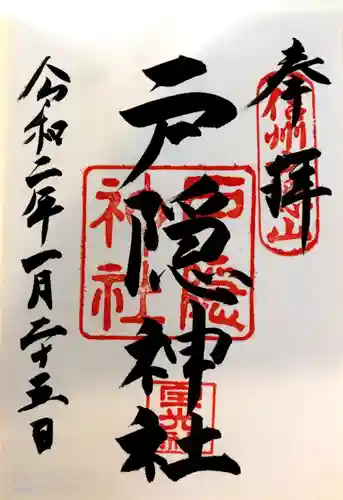 奉拝
信州戸隠山
戸隠神社
戸隠神社
令和二年一月二十五日